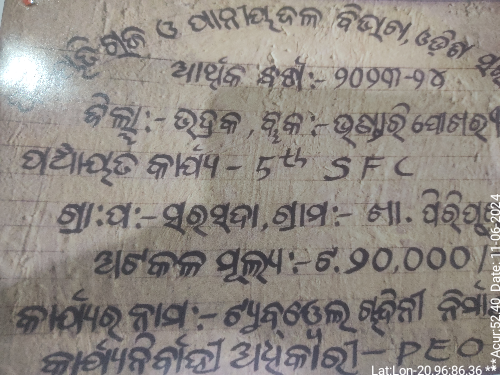 ଓ ପାନୀୟଜଳ ବିଭାଗ, ଓଡ଼ିଶା
ଆର୍ଥିକ ବର୍ଷ:- ୨୦୨୩-୨୪
ଜିଲ୍ଲା:- ଭଦ୍ରକ, ବ୍ଲକ:- ଭଣ୍ଡାରିପୋଖରୀ
ପଞ୍ଚାୟତ କାର୍ଯ୍ୟ - 5th SFC
ଗ୍ରା:ପ:- ସରସଦା, ଗ୍ରାମ:- ଖା.
ଅଟକଳ ମୂଲ୍ୟ:- ଟ.୨0,000/
କାର୍ଯ୍ୟର ନାମ:- ଟ୍ୟୁବୱେଲ
କାର୍ଯ୍ୟନିର୍ବାହୀ ଅଧିକାରୀ - PEO
Lat:Lon-20.96:86.36 ** Acur:52.49 Date: 11-06-2024